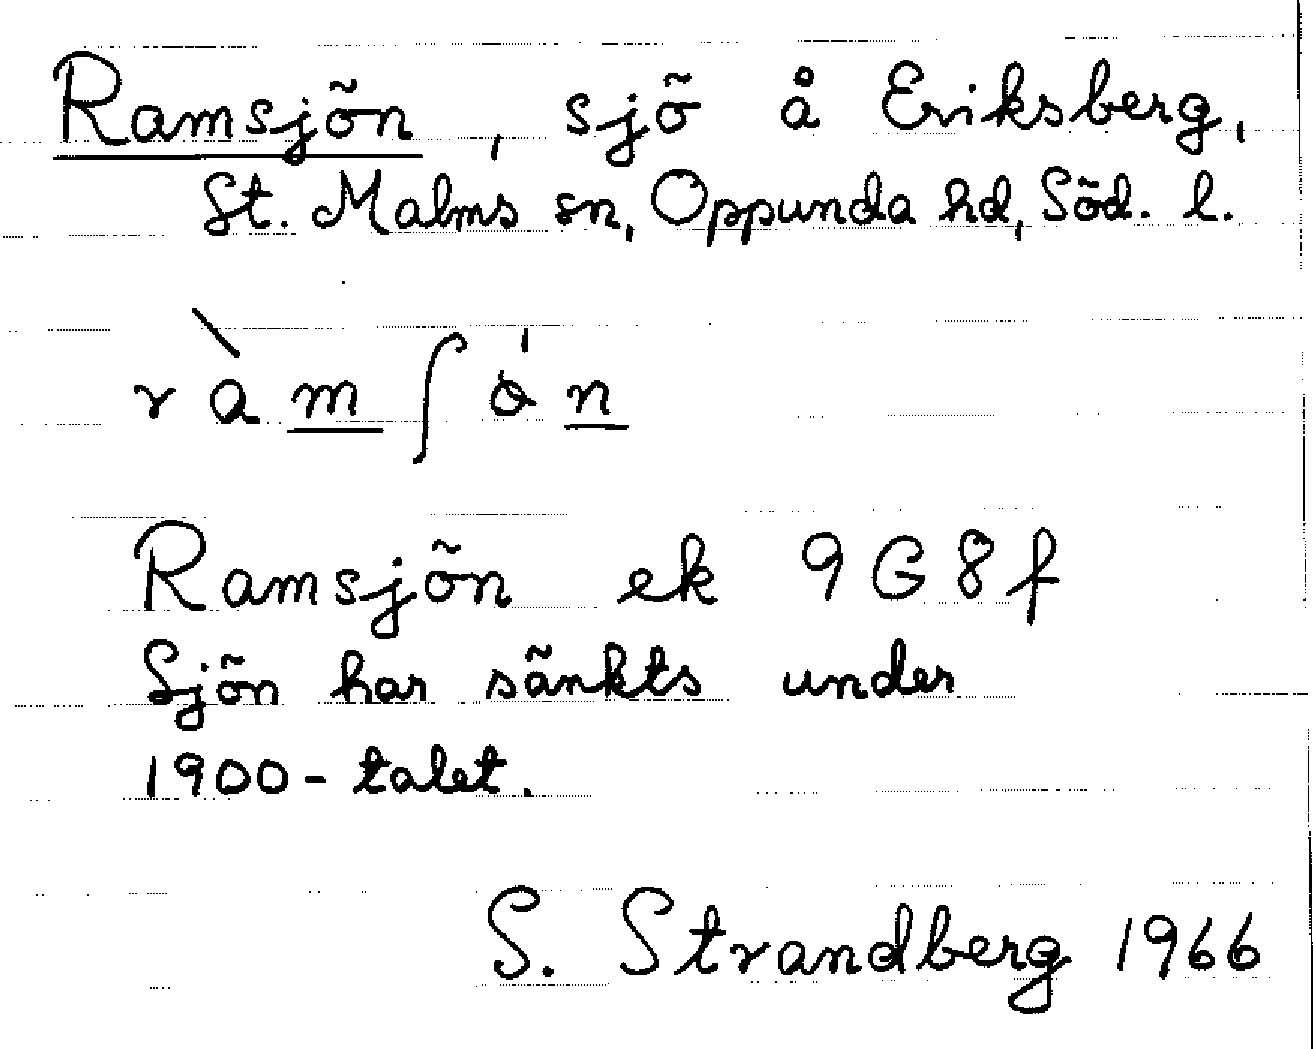 Ramsjön, sjö å Eriksberg,
St. Malms sn, Oppunda hd, Söd. l.
Ramsjön ek 9G8f
Sjön har sänkts under
1900-talet.
S. Strandberg 1966